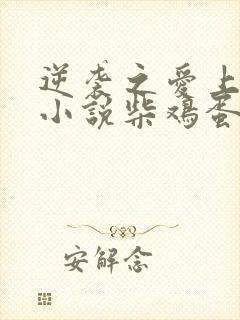 逆袭之爱上
小说柴鸡蛋
安解念